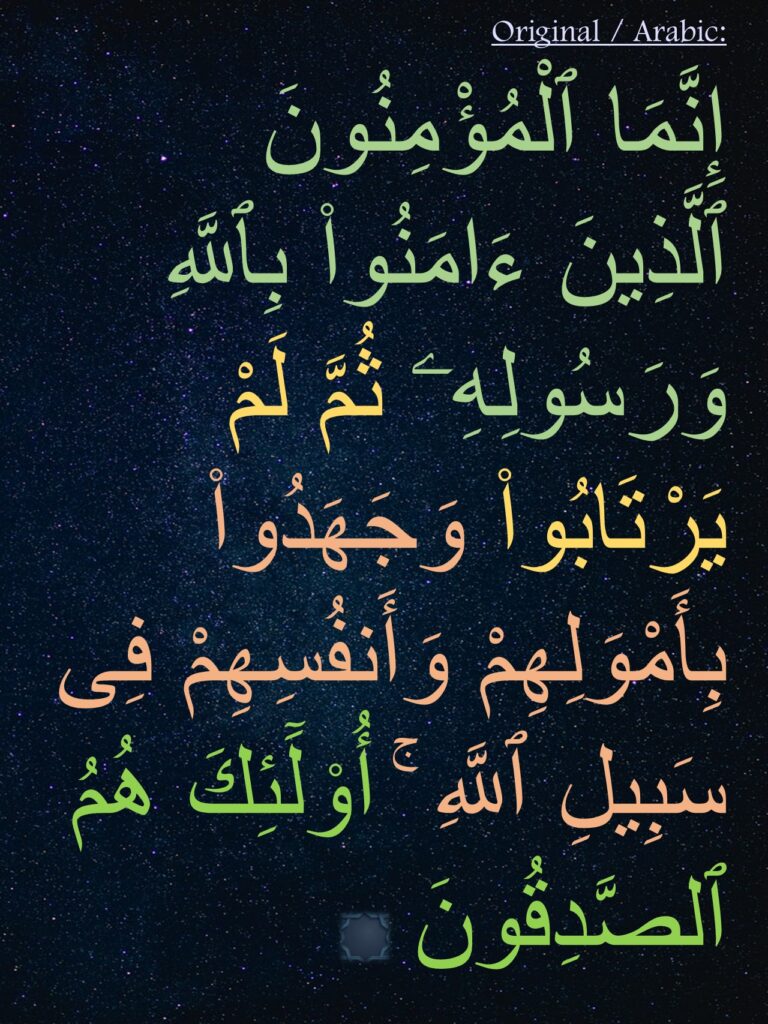 Original / Arabic:
إِنَّمَا ٱلْمُؤْمِنُونَ
ٱلَّذِينَ ءَامَنُوا۟ بِٱللَّهِ
وَرَسُولِهِۦ ثُمَّ لَمْ
يَرْتَابُوا۟ وَجَـهَدُوا۟
بِأَمْوَلِهِمْ وَأَنفُسِهِمْ فِى
سَبِيلِ ٱللَّهِ ۚ أُو۟لَـٓئِكَ هُمُ
ٱلصَّـدِقُونَ